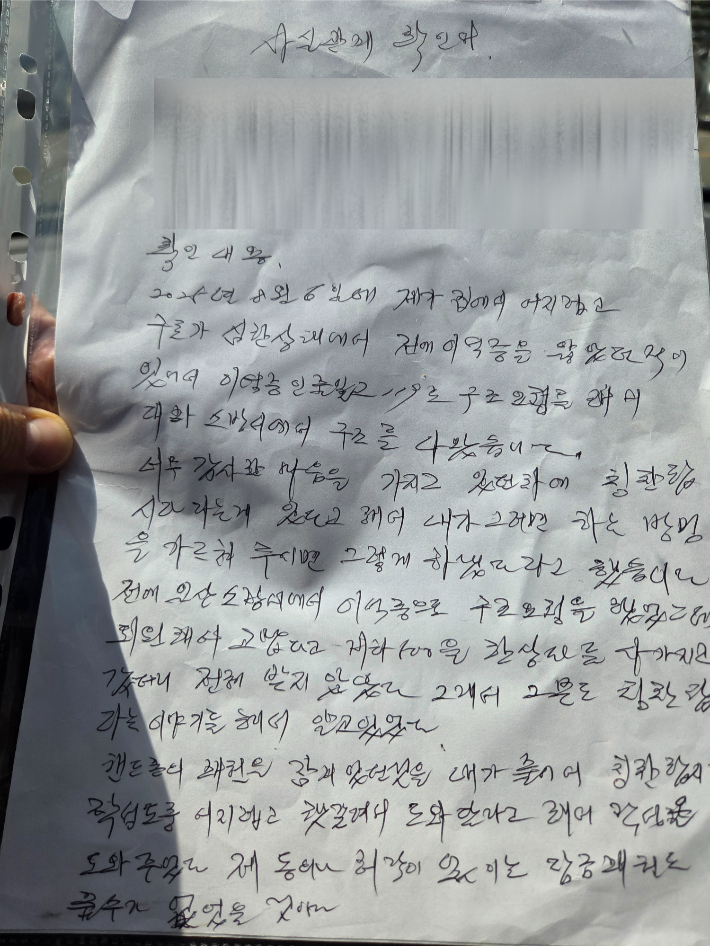 사실관계 확인서.
확인 내용.
2025년 8월 6일에 제가 집에서 어지럽고
구토가 심한상태에서 전에 이석증을 앓았던적이
있어서 이석증인줄알고 119로 구조요청을 해서
대화 소방서에서 구조를 나왔습니다.
너무 감사한 마음을 가지고 있던차에 칭찬합
시다 라는게 있다고 해서 내가 그러면 하는 방법
을 가르쳐 주시면 그렇게 하겠다라고 했습니다
전에 오산소방서에서 이석증으로 구조요청을 했었는데
퇴원해서 고맙다고 제하 100을 한상자를 사가지고
갔더니 전혀 받지 않았다 그래서 그분도 칭찬합
라는 이야기를 해서 알고있었다
핸드폰의 패턴을 잠겨 있던것을 내가 풀어서 칭찬합시다
작성도중 어지럽고 헷갈려서 도와달라고 해서 작성을
도와주었다 제 동의나 허락이 없이는 잠금패턴도
풀수가 없었을 것이다